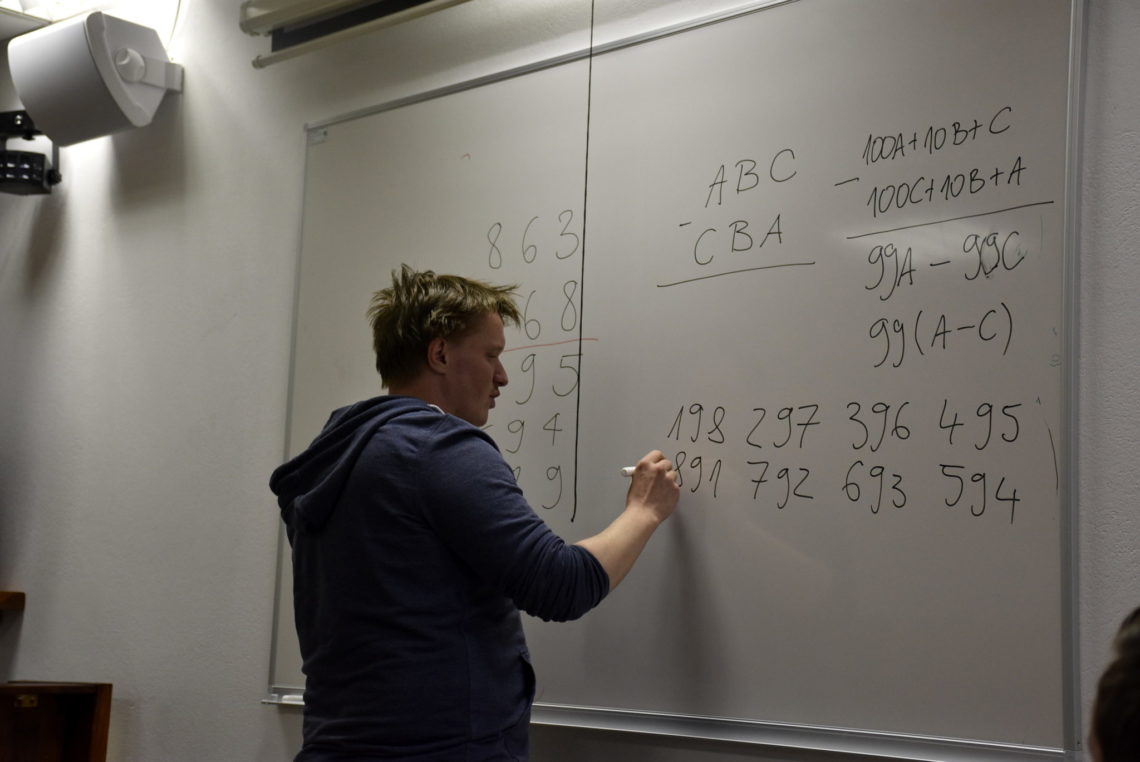 8 6 3
6 8
9 5
9 4
9
A B C
- C B A
100A+10B+C
- 100C+10B+A
99A - 99C
99(A-C)
198 297 396 495
891 792 693 594